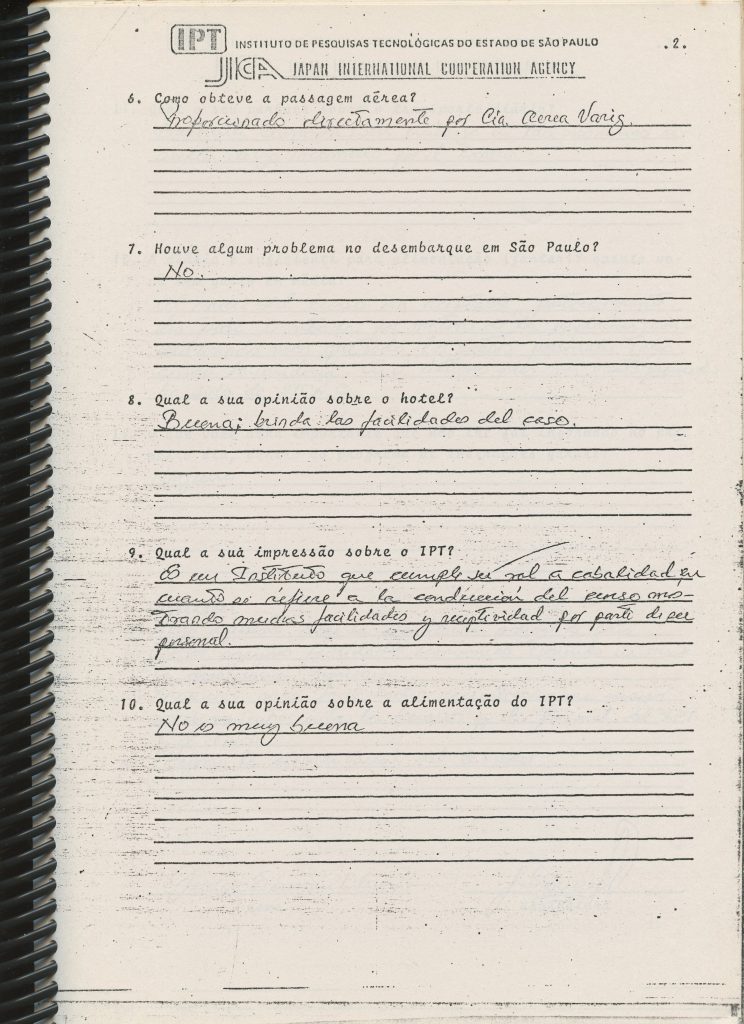 IPT INSTITUTO DE PESQUISAS TECNOLÓGICAS DO ESTADO DE SÃO PAULO .2.
JICA JAPAN INTERNATIONAL COOPERATION AGENCY
6. Como obteve a passagem aérea?
Proporcionado directamente por Cia. Aerea Varig.
7. Houve algum problema no desembarque em São Paulo?
No.
8. Qual a sua opinião sobre o hotel?
Buena; brinda las facilidades del caso.
9. Qual a sua impressão sobre o IPT?
Es un Instituto que cumple su rol a cabalidad en
cuanto se refiere a la conducción del curso mos-
trando muchas facilidades y receptividad por parte de su
personal.
10. Qual a sua opinião sobre a alimentação do IPT?
No es muy buena